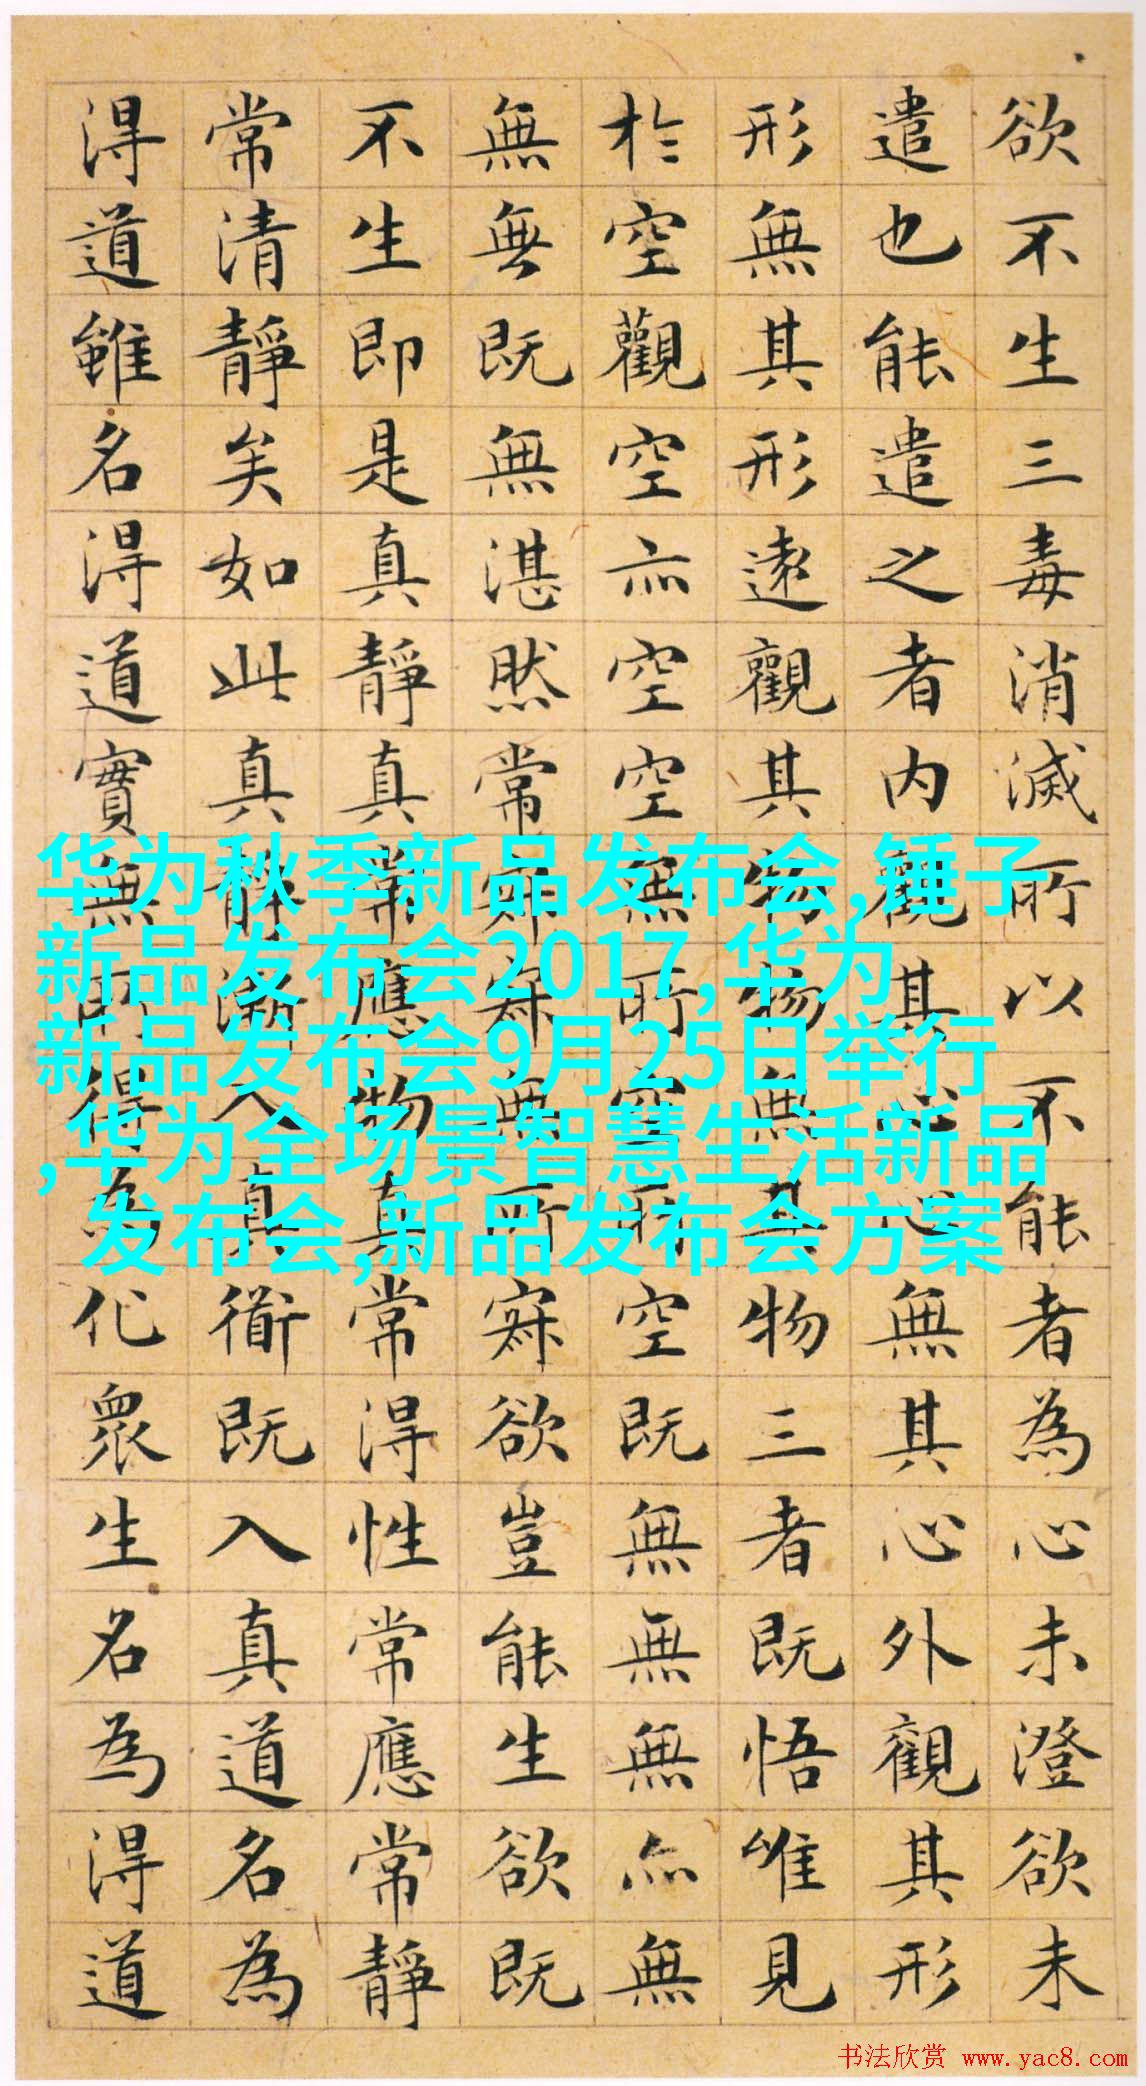 欲不生三毒消滅所以不能者為心未澄欲未
遣也能遣之者内觀其心心無其心外觀其形
形無其形遠觀其物物無其物三者既悟唯見
於空觀空亦空空無所空所空既無無無亦無
無無既無湛然常寂寂無所寂欲豈能生欲既
不生即是真靜真常應物真常得性常應常靜
常清靜矣如此真靜漸入真衜既入真道名為
得道雖名得道實無所得為化眾生名為得道
华为秋季新品发布会,锤子
新品发布会2017,华为
新品发布会9月25日举行
,华为全场景智慧生活新品
发布会,新品发布会方案
书法欣赏 www.yac8.com